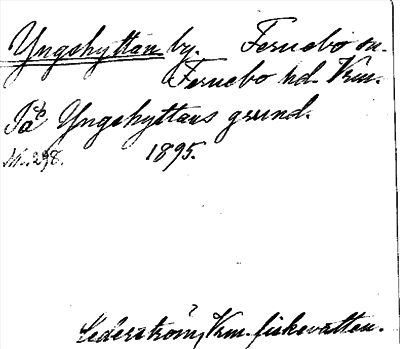 Yngshyttan by. Fernebo sn.
Fernebo hd. Vrm.
På Yngshyttans grund.
N. 298. 1895.
Cederström, Vrm. fiskevatten.